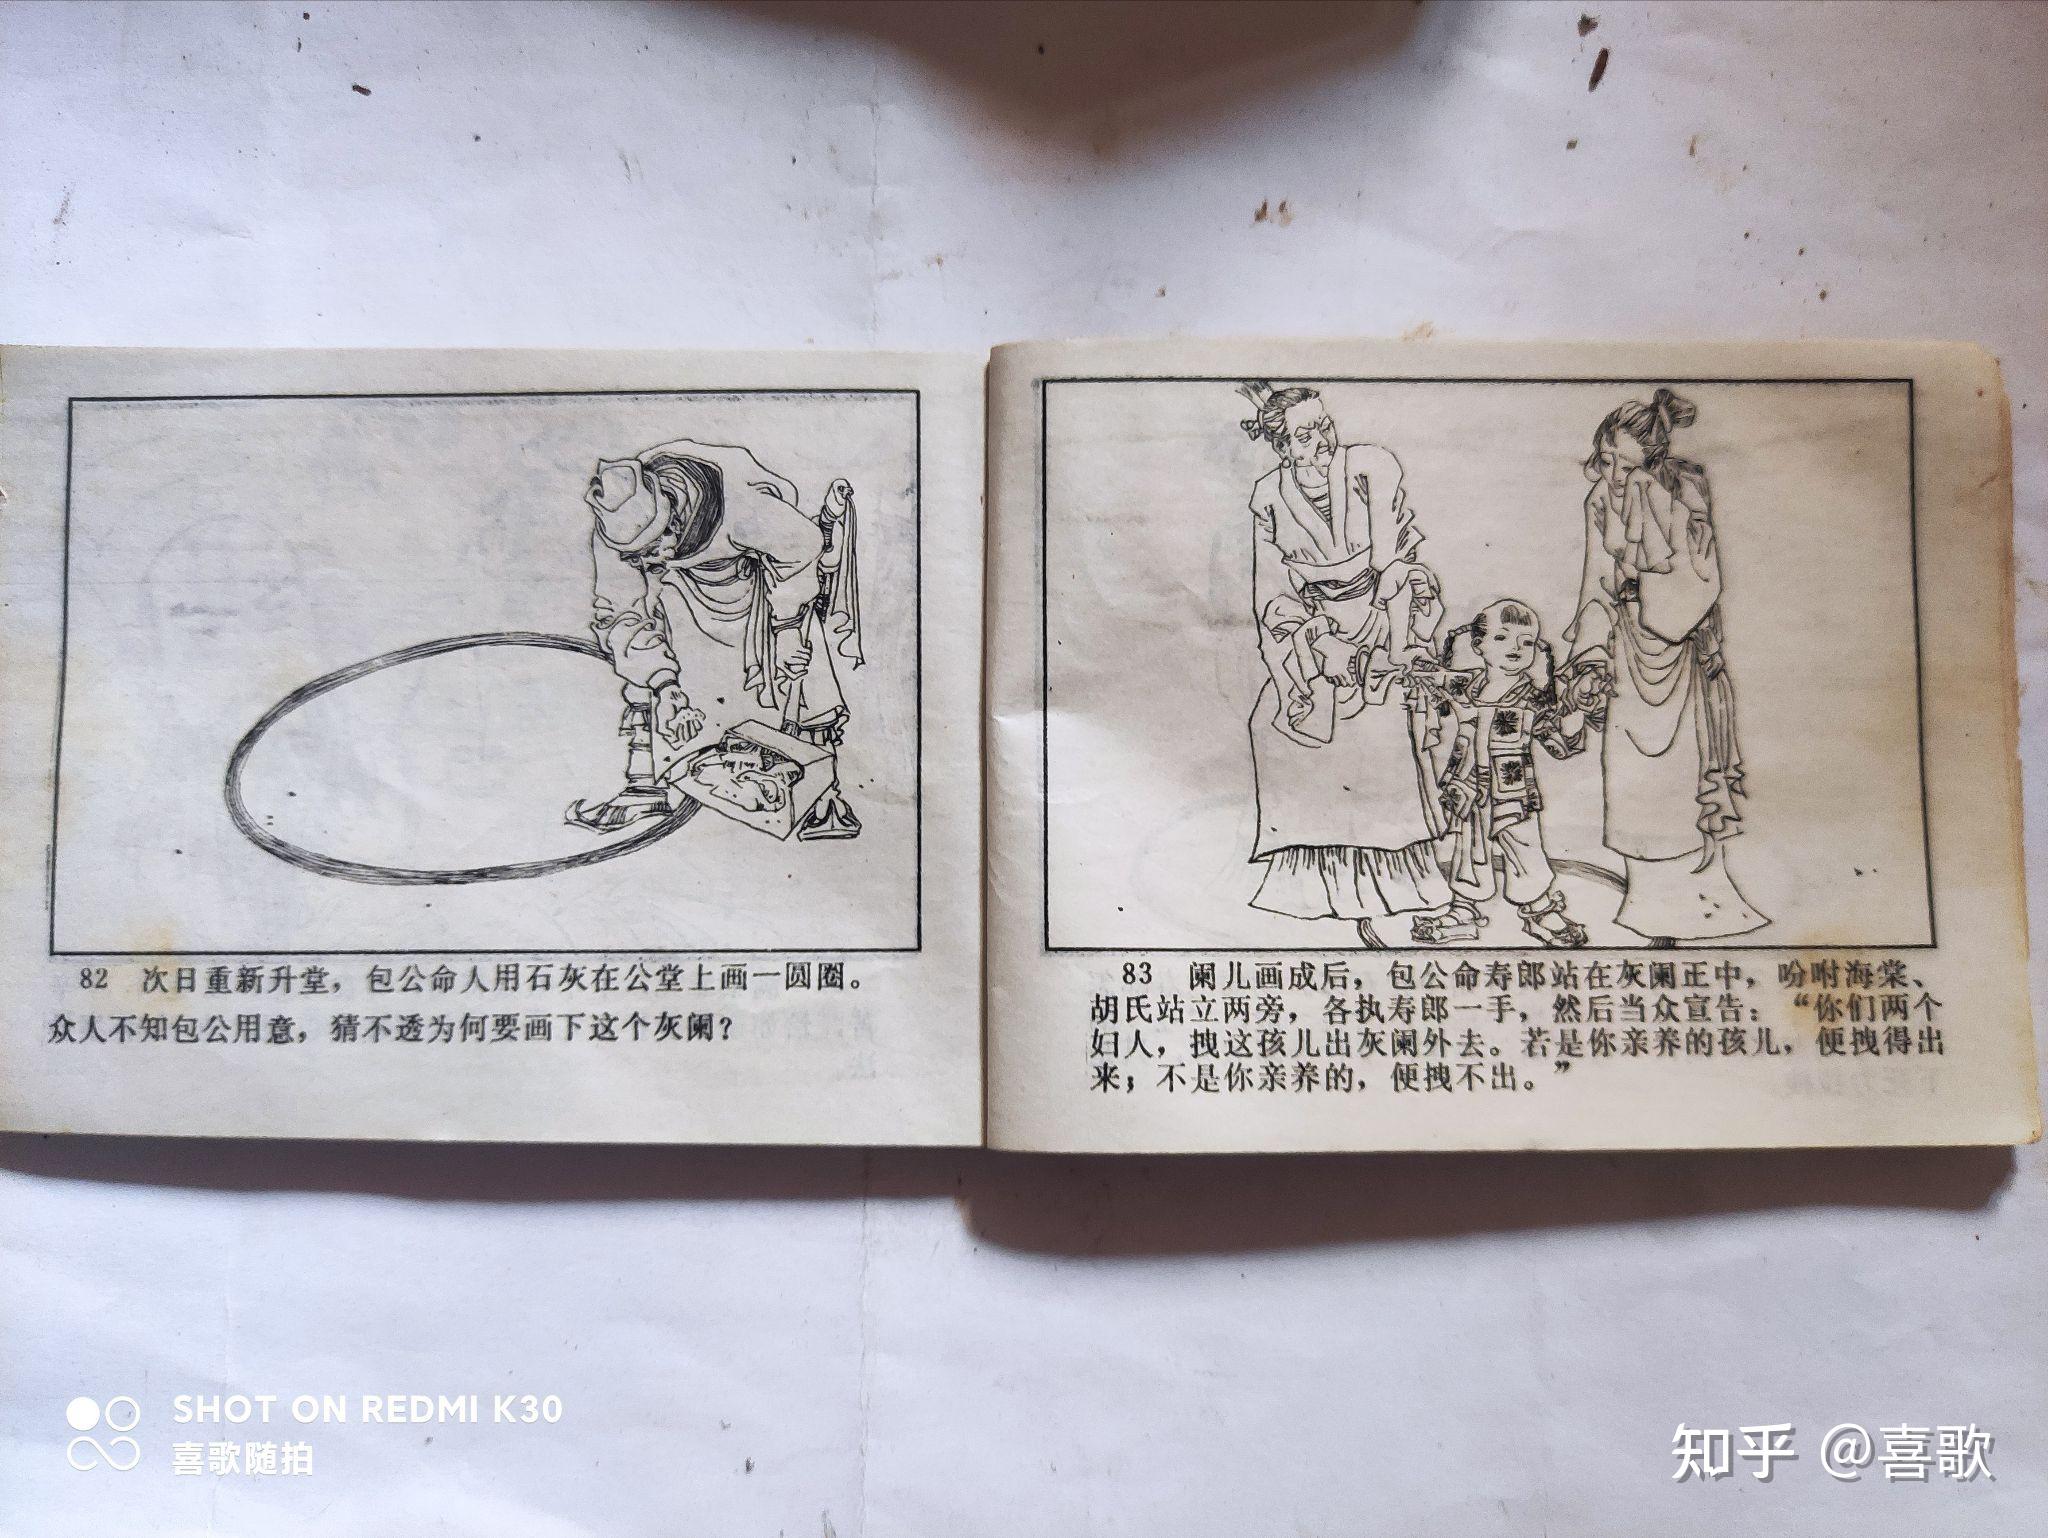 82 次日重新升堂，包公命人用石灰在公堂上画一圆圈。
众人不知包公用意，猜不透为何要画下这个灰阑？
83 阑儿画成后，包公命寿郎站在灰阑正中，吩咐海棠、
胡氏站立两旁，各执寿郎一手，然后当众宣告：“你们两个
妇人，拽这孩儿出灰阑外去。若是你亲养的孩儿，便拽得出
来；不是你亲养的，便拽不出。”
SHOT ON REDMI K30
喜歌随拍
知乎 @喜歌